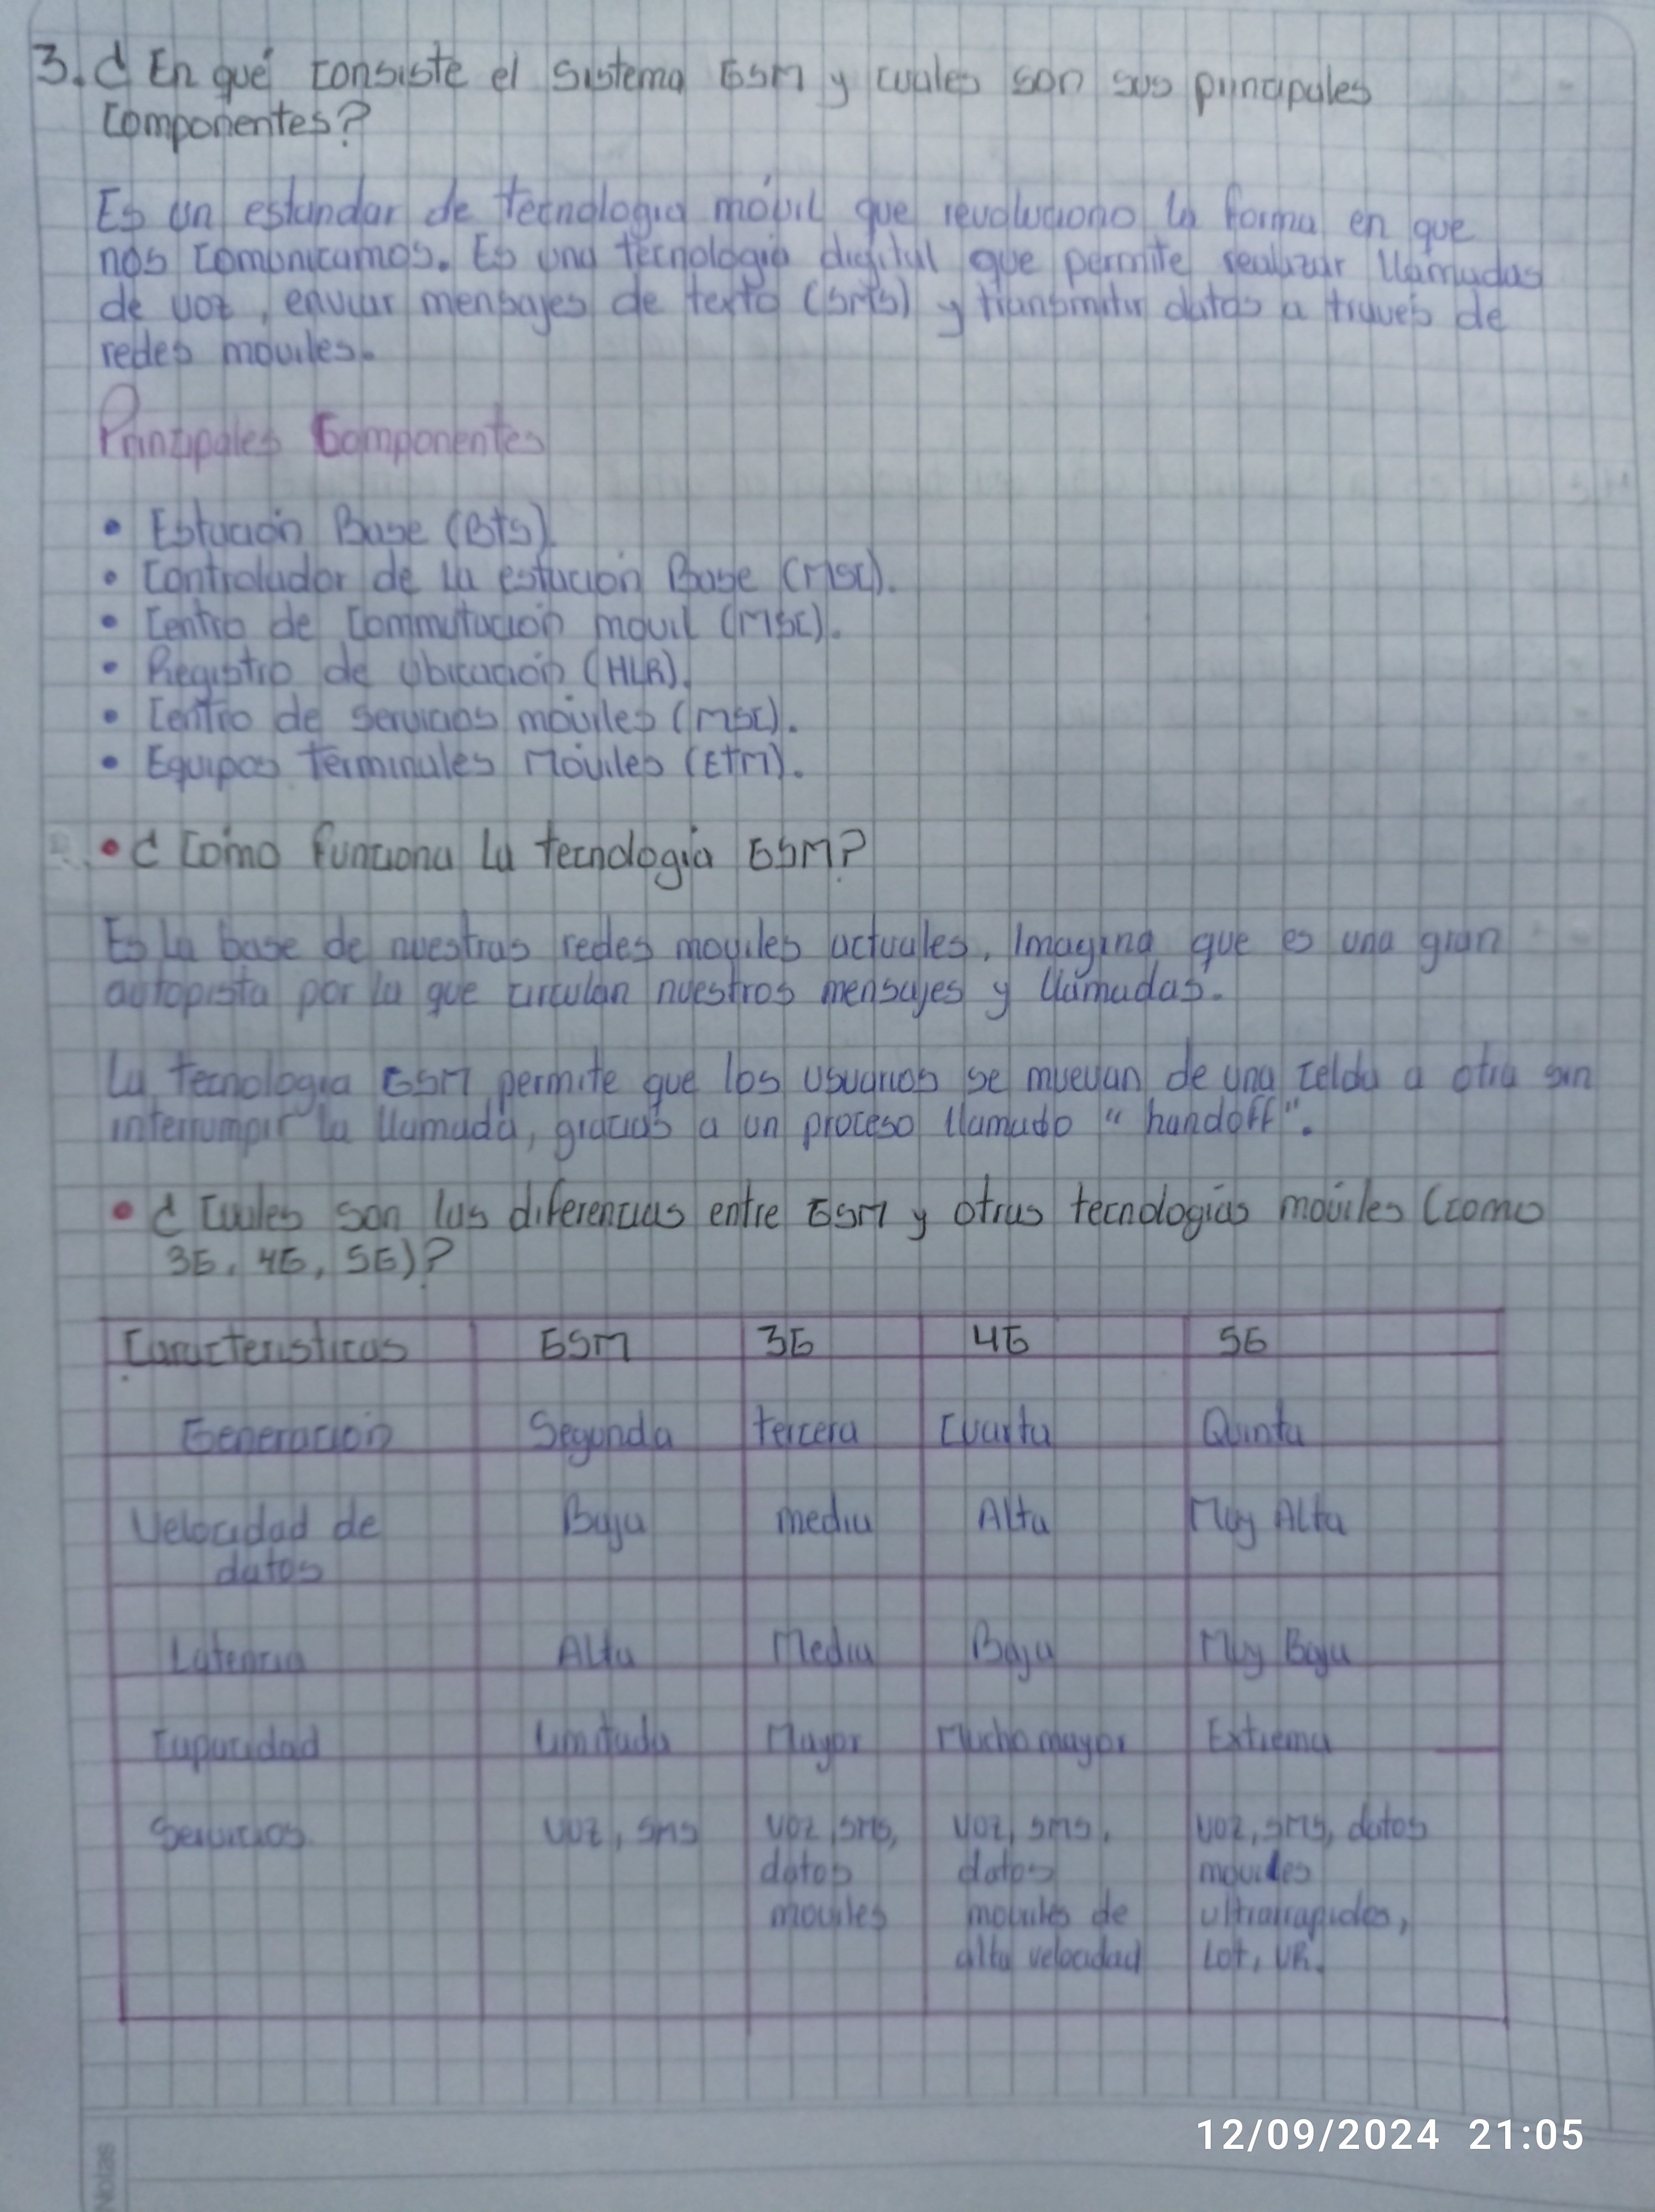 3. ¿En qué consiste el sistema GSM y cuales son sus principales
componentes?
Es un estandar de tecnologia móvil que revoluciono la forma en que
nos comunicamos. Es una tecnologia digital que permite realizar llamadas
de voz, enviar mensajes de texto (SMS) y transmitir datos a través de
redes moviles.
Principales Componentes
• Estación Base (BTS)
• Controlador de la estación Base (MSC).
• Centro de Conmutación movil (MSC).
• Registro de Ubicación (HLR).
• Centro de servicios móviles (MSC).
• Equipos Terminales Móviles (ETM).
• ¿Cómo funciona la tecnologia GSM?
Es la base de nuestras redes moviles actuales. Imagina que es una gran
autopista por la que circulan nuestros mensajes y llamadas.
La tecnologia GSM permite que los usuarios se muevan de una celda a otra sin
interrumpir la llamada, gracias a un proceso llamado "handoff".
• ¿Cuales son las diferencias entre GSM y otras tecnologías móviles (como
3G, 4G, 5G)?
Caracteristicas GSM 3G 4G 5G
Generación Segunda Tercera Cuarta Quinta
Velocidad de Baja media Alta Muy Alta
datos
Latencia Alta Media Baja Muy Baja
Capacidad Limitada Mayor Mucho mayor Extrema
Servicios voz, sms voz, sms, voz, sms, voz, SMS, datos
datos datos moviles
moviles moviles de ultrarrapidos,
alta velocidad Lot, VR.
12/09/2024 21:05
Notas